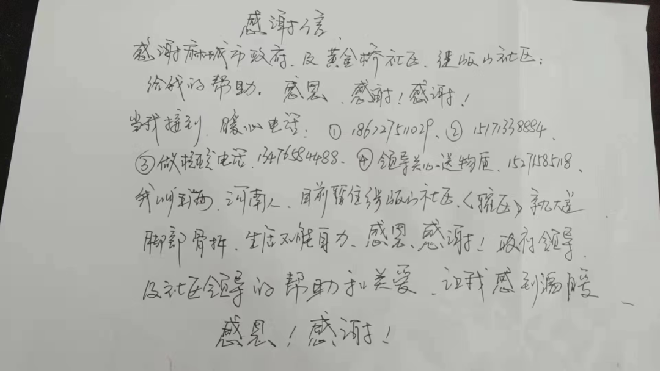 感谢信
感谢麻城市政府、及黄金桥社区、社区:
给我的帮助。感恩、感谢!感谢!
当我接到、暖心电话: ① 18627511029、② 15171338884、
③ 做核酸电话 13476584488、④ 领导关心送物质、1527158518、
我叫、河南人、目前暂住社区、
脚部骨折、生活不能自力、感恩、感谢!政府领导、
及社区领导的帮助和关爱、让我感到温暖
感恩!感谢!